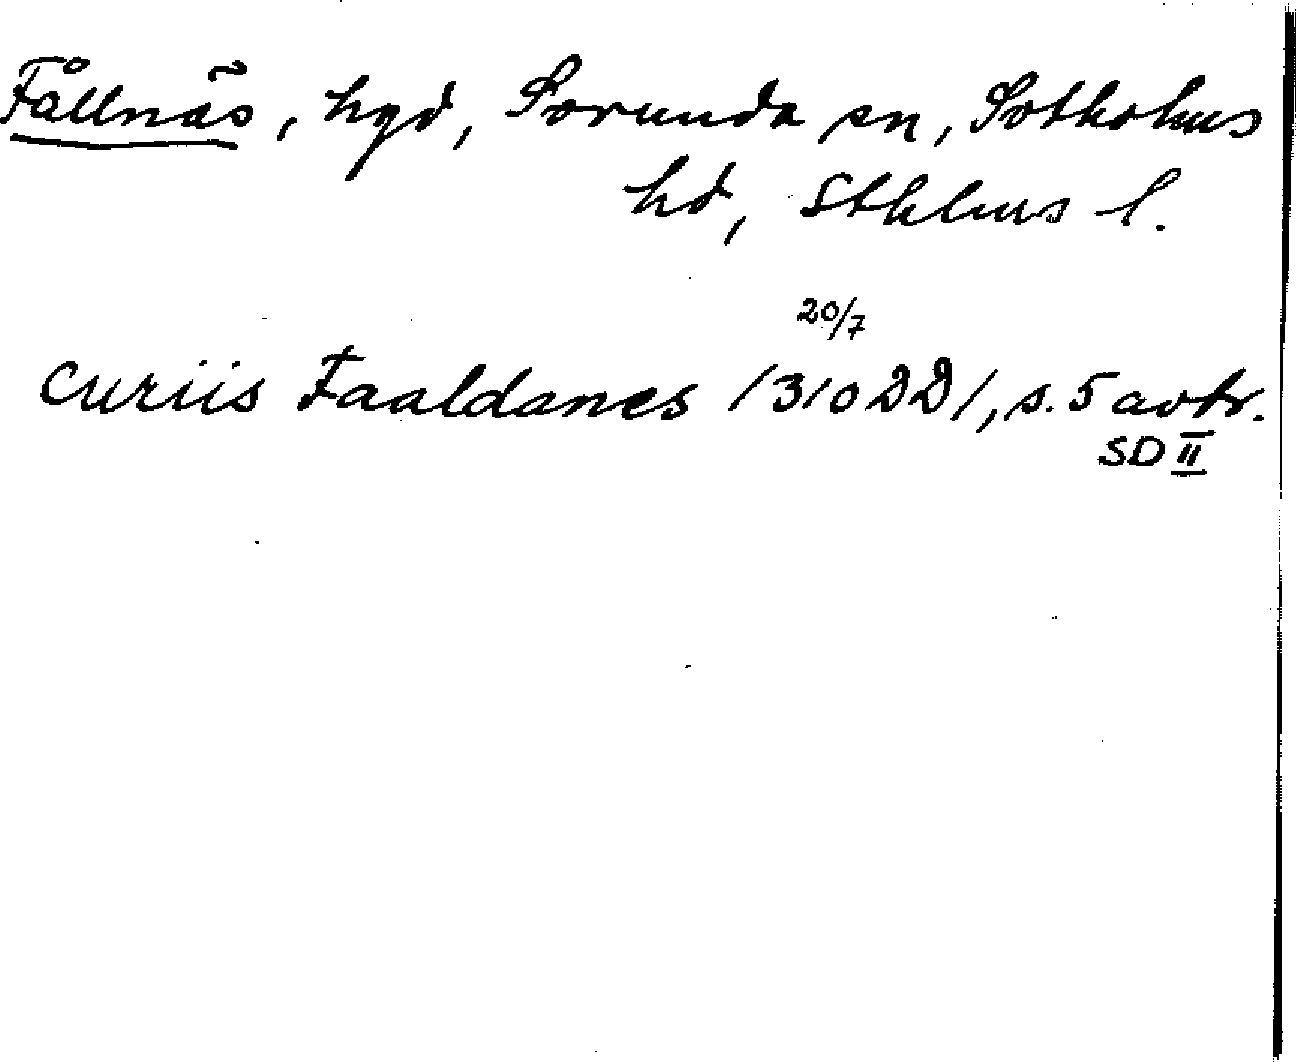 Fållnäs, hgd, Sorunda sn, Sotholms
hd, Sthlms l.
20/7
curiis Faaldanes 1310 DD1, s. 5 avtr.
SD II